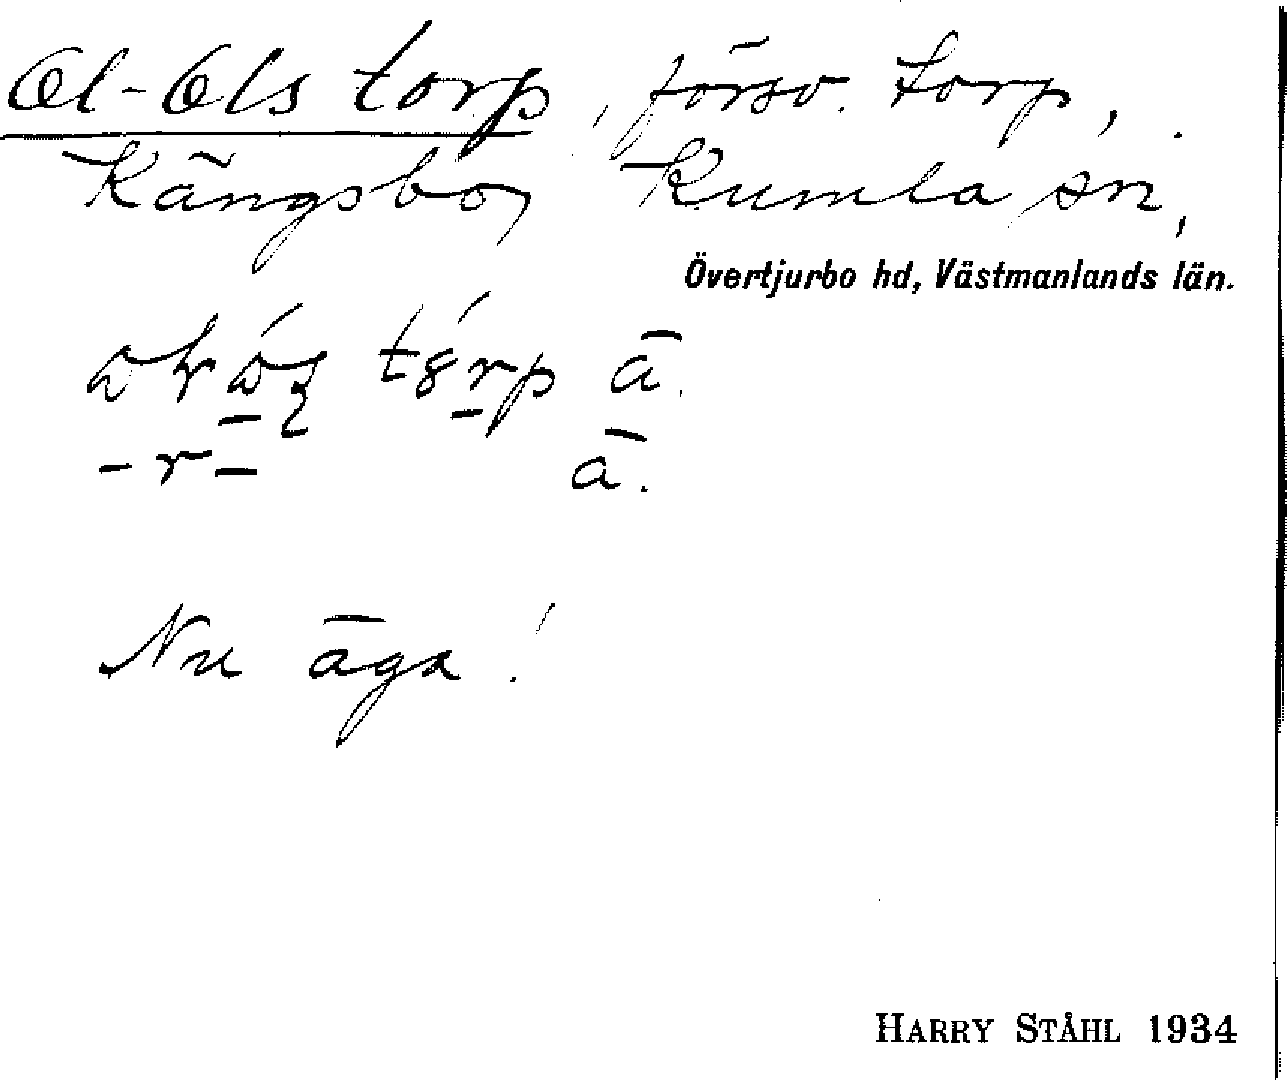 Ol-Ols torp, försv. torp,
Kängsbo, Kumla sn,
Övertjurbo hd, Västmanlands län.
ā.
-r- ā.
Nu äga!
HARRY STÅHL 1934